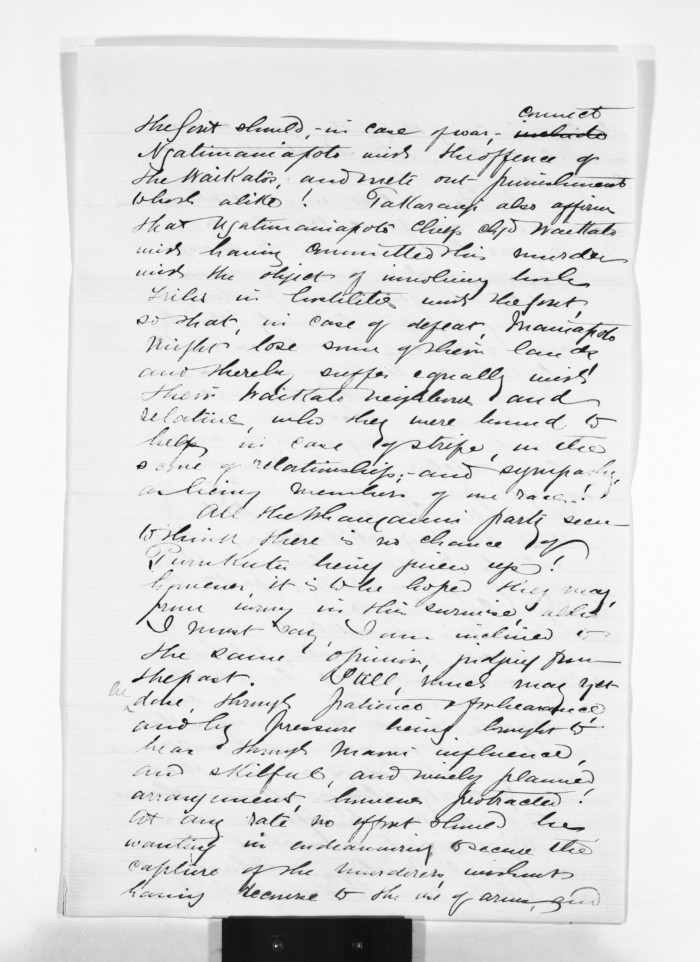 connect
the Govt should, - in case of war, - include
Ngatimaniapoto with the offence of
the Waikatos, and mete out punishment
to both alike! Takarangi also affirm
that Ngatimaniapoto Chiefs chgd Waikato
with having committed this murder
with the object of involving both
tribes in hostilities with the Govt,
so that, in case of defeat, Maniapoto
might lose some of their lands
and thereby suffer equally with
their Waikato neighbours and
relatives, who they were bound to
help in case of strife, on the
score of relationship, - and sympathy,
as being members of one race!
All the Whanganui party seem
to think there is no chance of
Purukutu being given up!
however, it is to be hoped they may
prove wrong in this surmise, altho
I must say, I am inclined to
the same opinion, judging from
the past. Still, much may yet
be
done, through patience & forbearance,
and by pressure being brought to
bear through Maori influence,
and skilful, and wisely planned
arrangement, however protracted!
At any rate no effort should be
wanting in endeavouring to secure the
capture of the murderers, without
having recourse to the use of arms, and